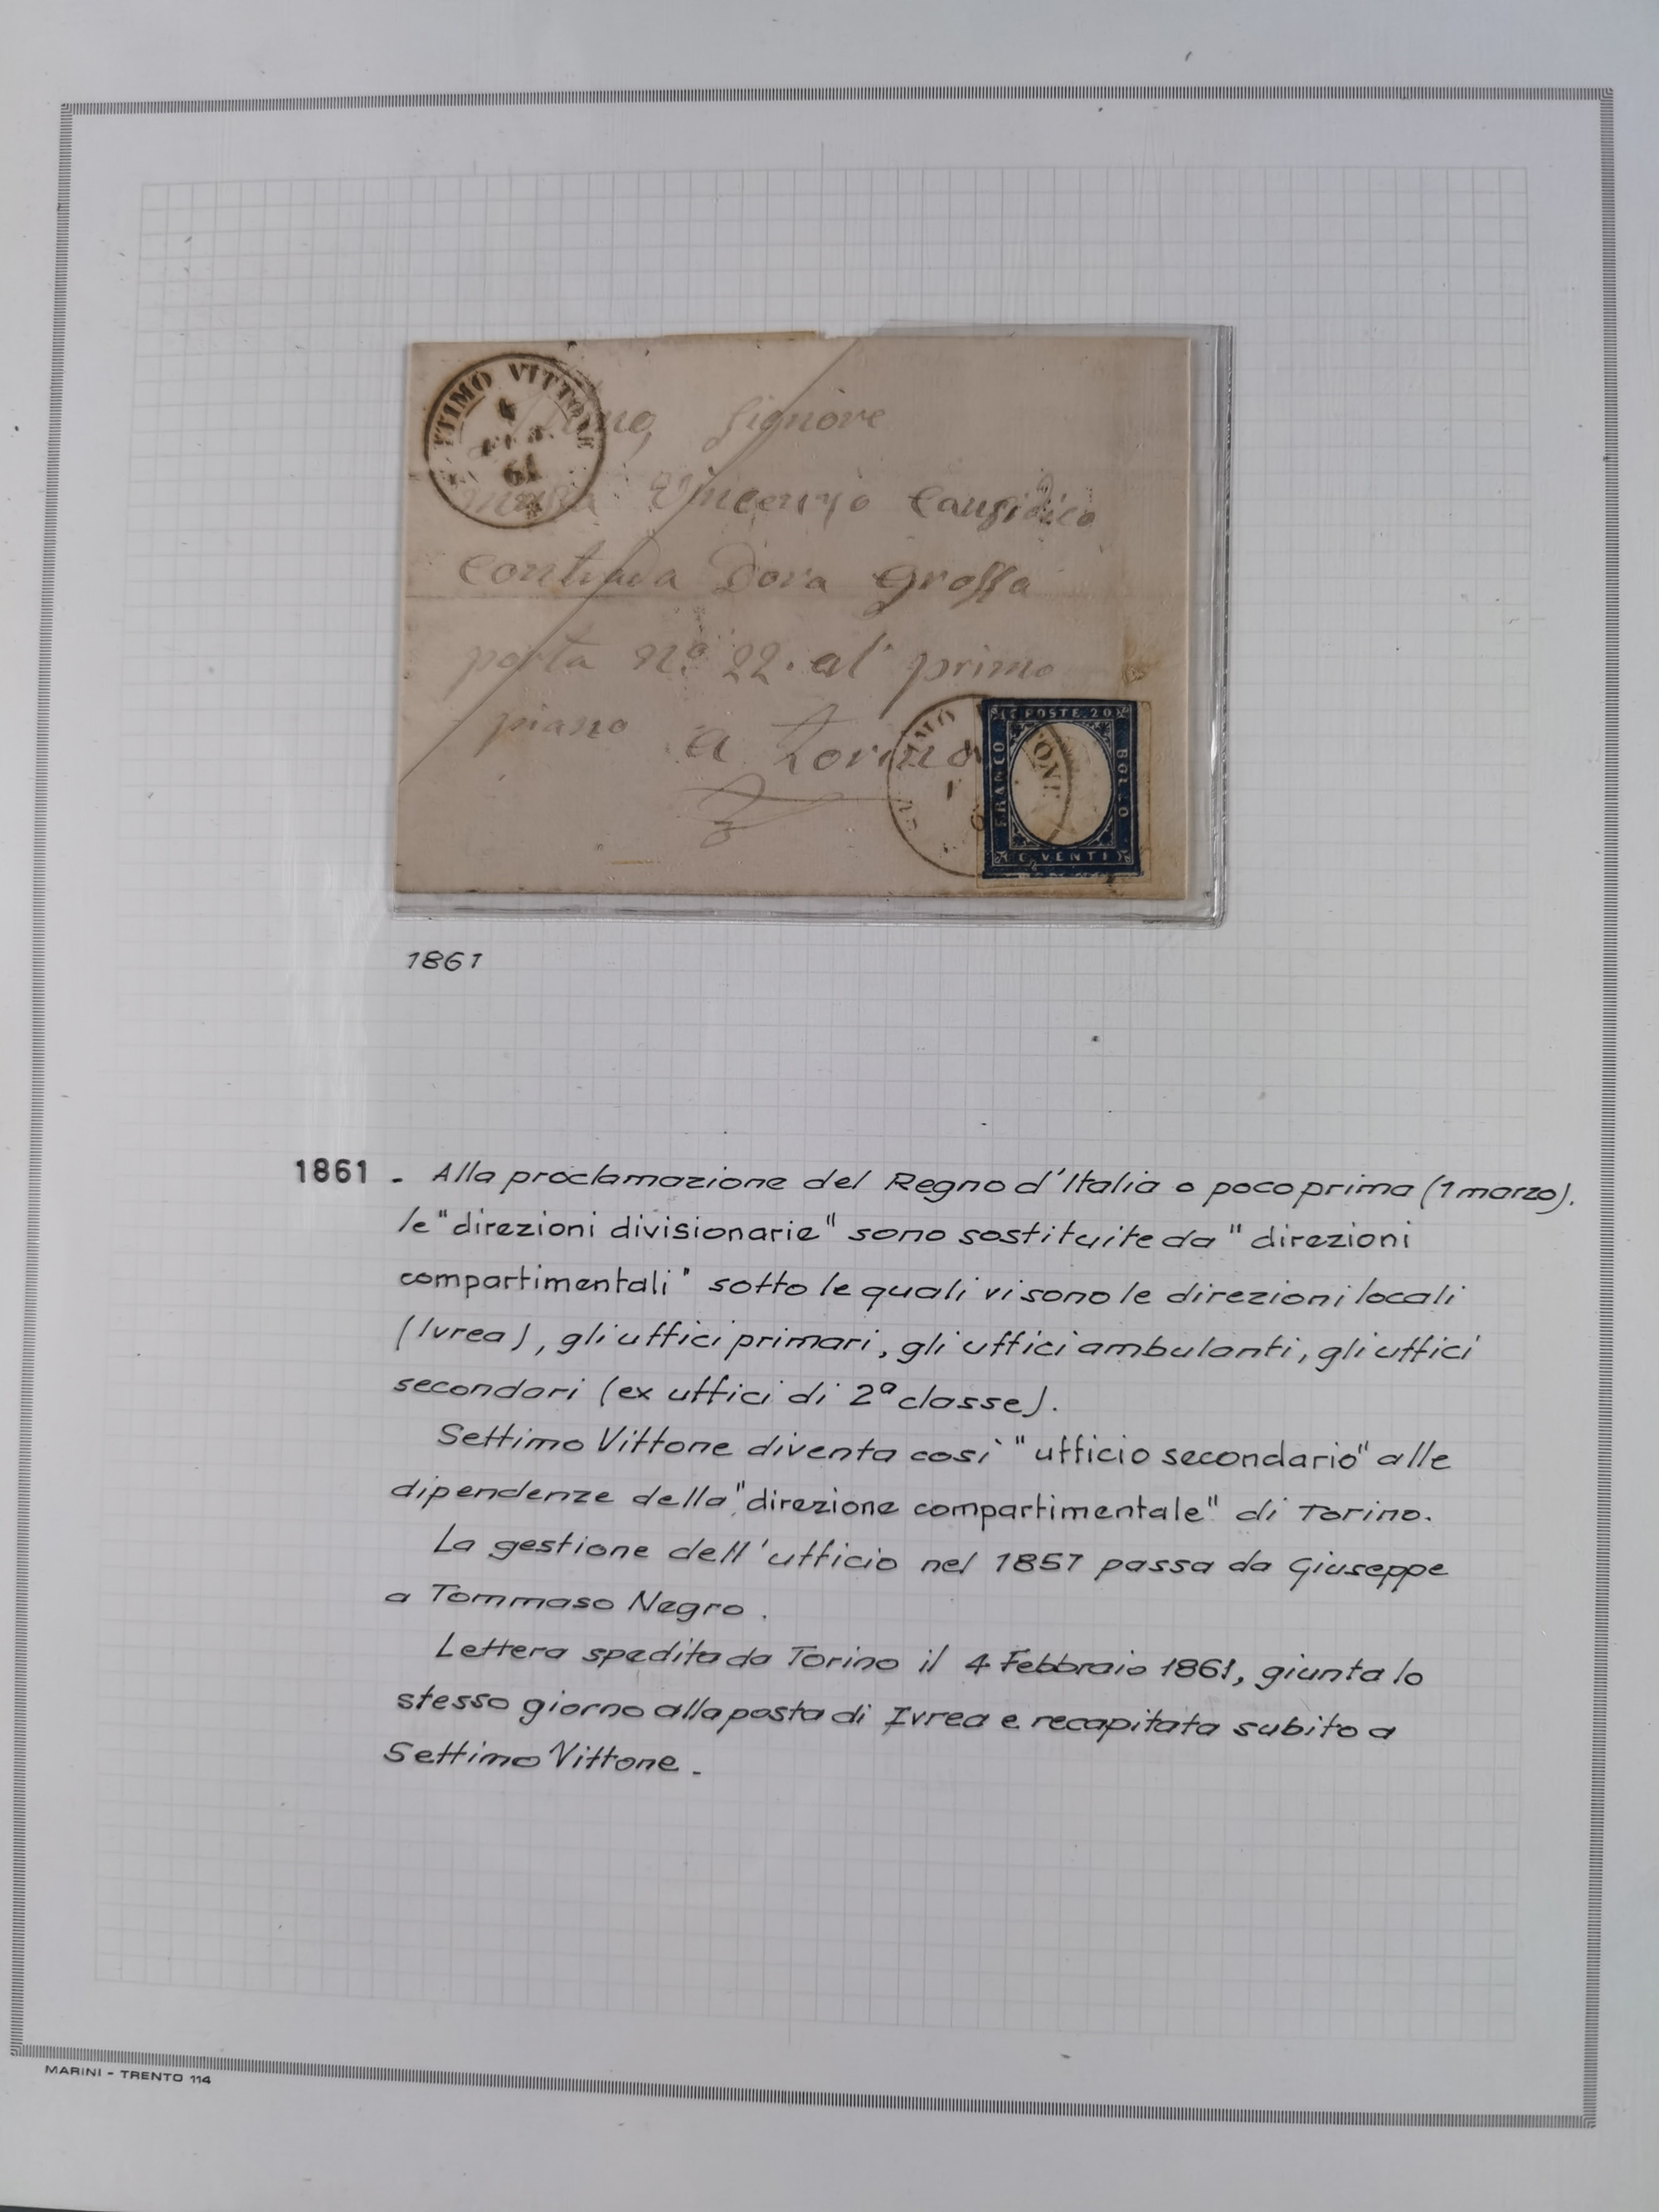 TTIMO VITTONE
4
FEB.
61
Signore
Vincenzo Causidico
Contrada Dora Grossa
porta No. 22. al primo
piano a Torino
C POSTE 20
FRANCO
BOLLO
C VENTI
TIMO
ONE
1861
1861 . Alla proclamazione del Regno d'Italia o poco prima (1 marzo).
le "direzioni divisionarie" sono sostituite da "direzioni
compartimentali" sotto le quali vi sono le direzioni locali
(Ivrea), gli uffici primari, gli uffici ambulanti, gli uffici
secondari (ex uffici di 2ª classe).
Settimo Vittone diventa così "ufficio secondario" alle
dipendenze della "direzione compartimentale" di Torino.
La gestione dell'ufficio nel 1857 passa da Giuseppe
a Tommaso Negro.
Lettera spedita da Torino il 4 Febbraio 1861, giunta lo
stesso giorno alla posta di Ivrea e recapitata subito a
Settimo Vittone.
MARINI - TRENTO 114